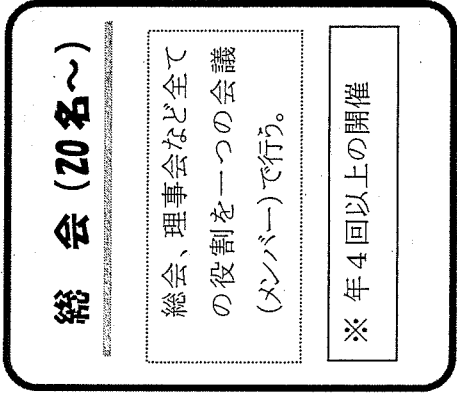 総 会 (20名～)
総会、理事会など全て
の役割を一つの会議
(メンバー)で行う。
※ 年4回以上の開催